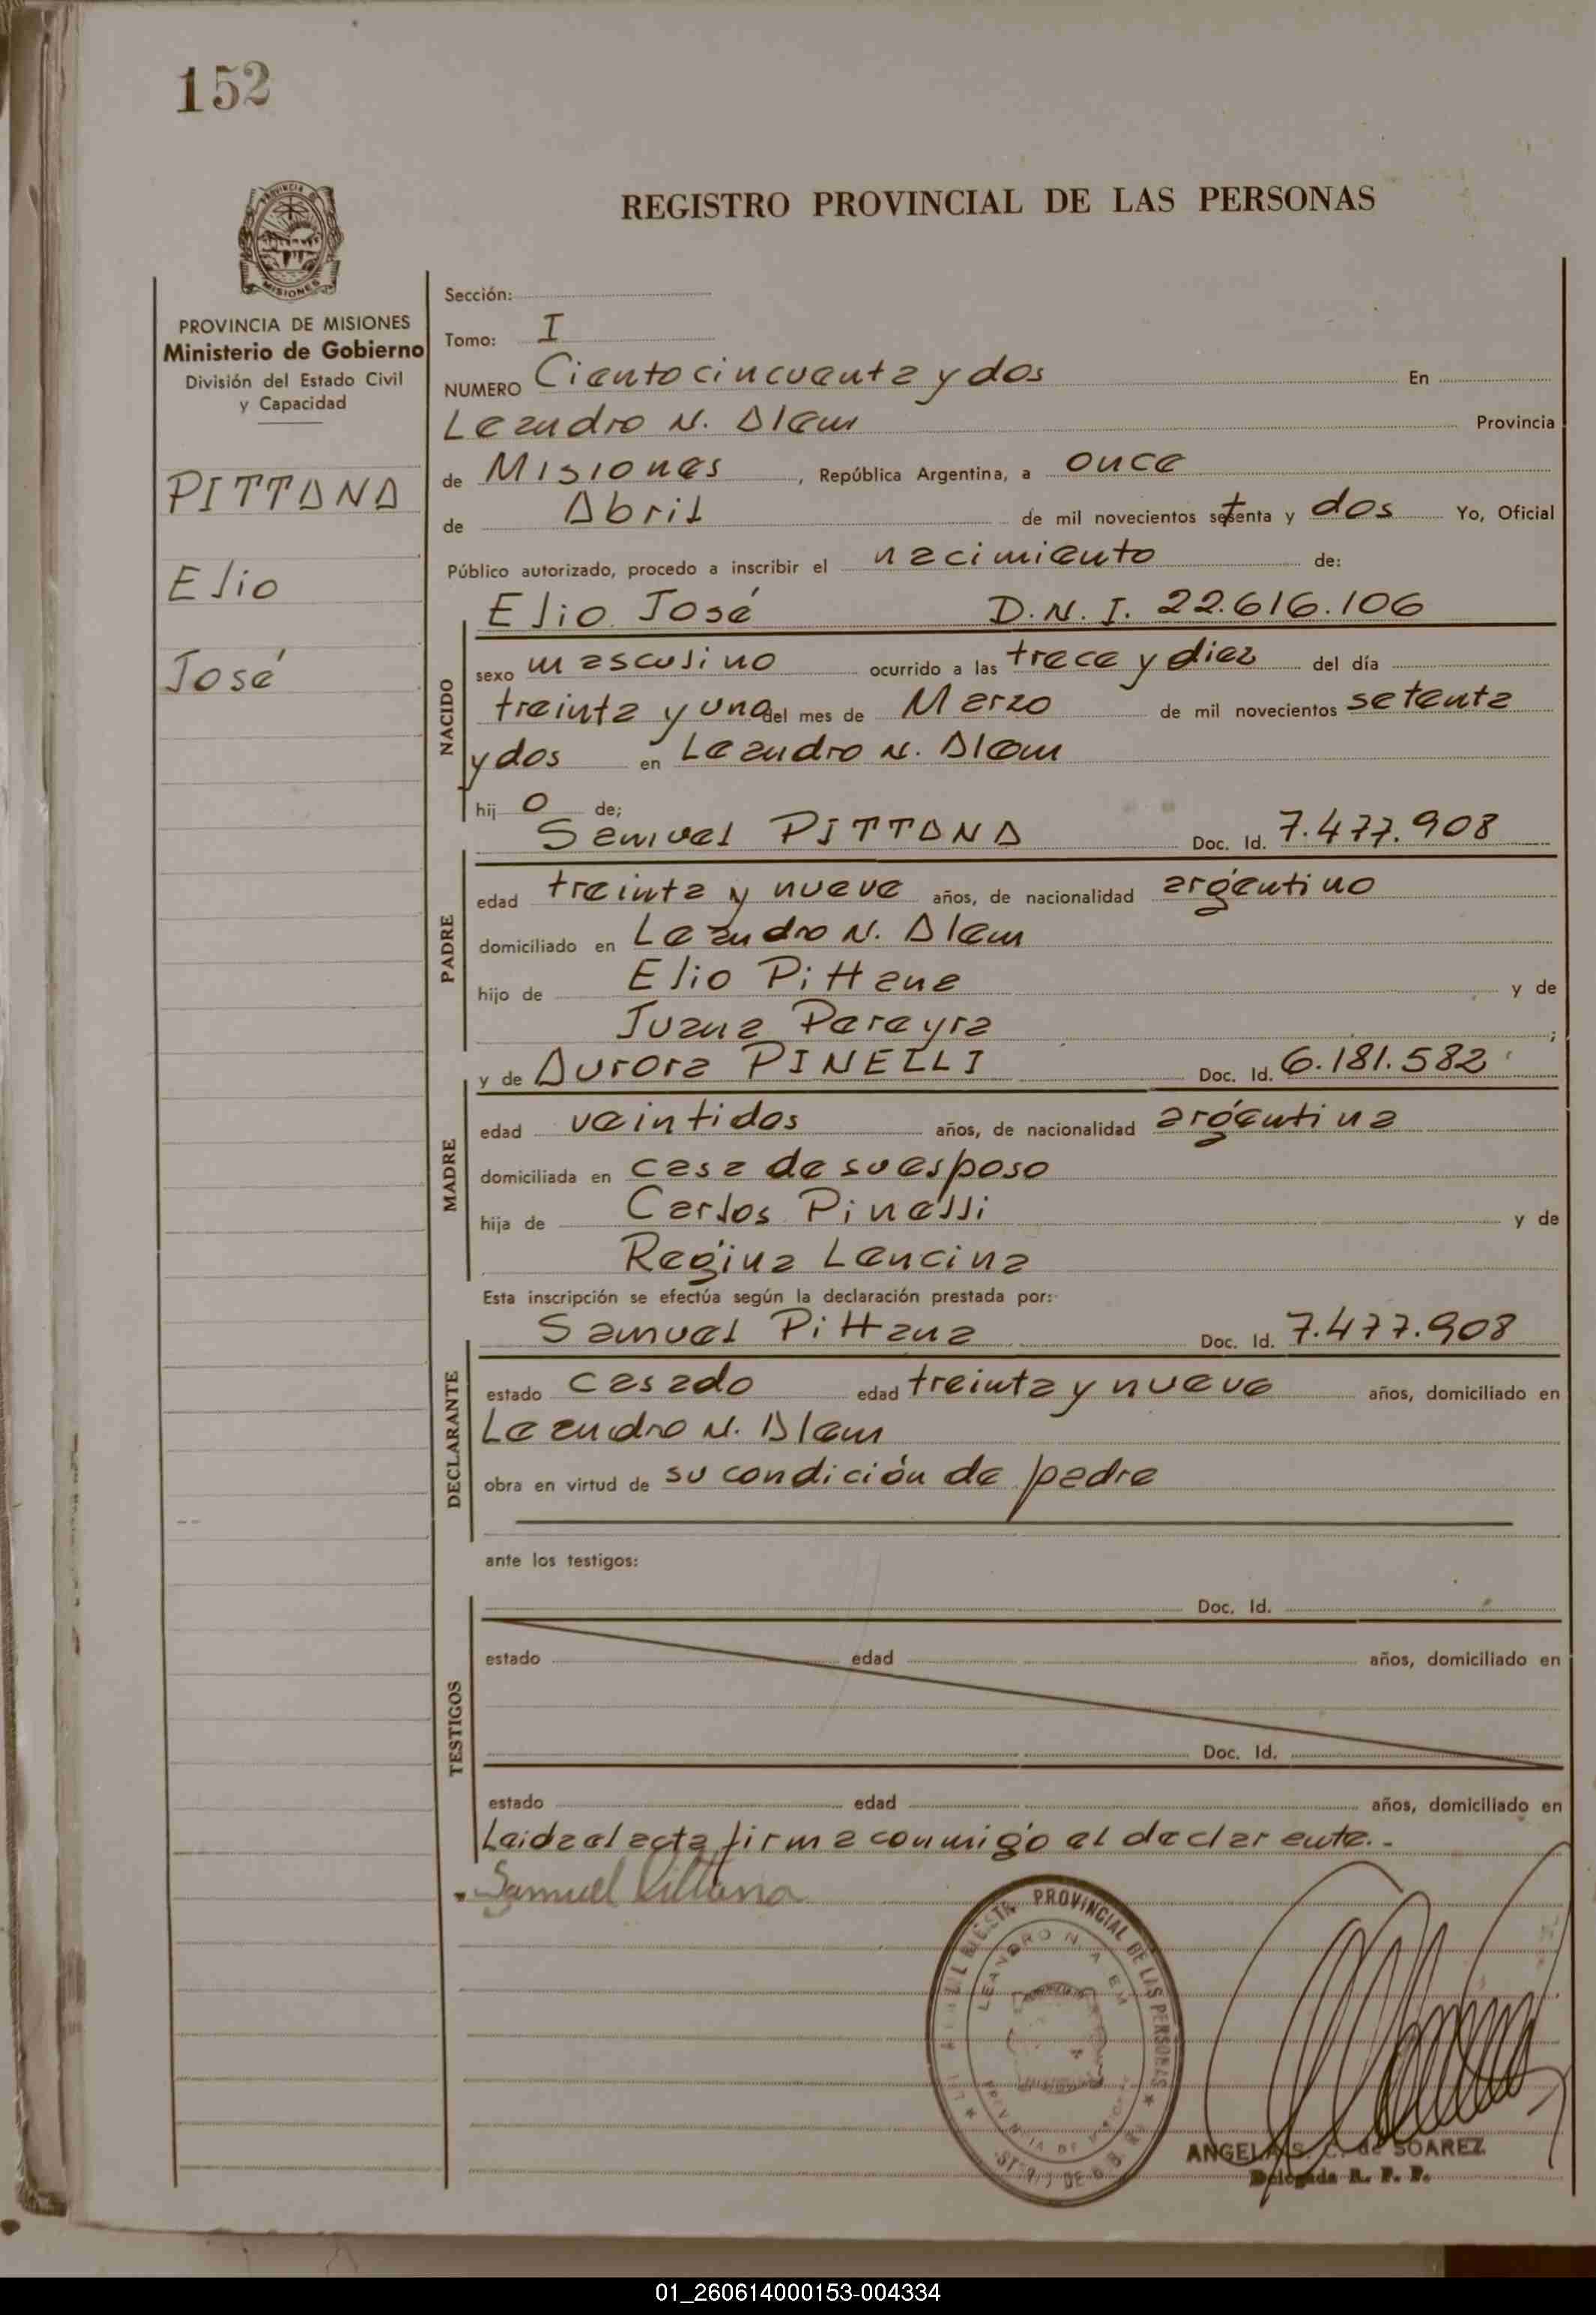 152
REGISTRO PROVINCIAL DE LAS PERSONAS
PROVINCIA MISIONES
PROVINCIA DE MISIONES
Ministerio de Gobierno
División del Estado Civil
y Capacidad
PITTANA
Elio
José
Sección:
Tomo: I
NUMERO Ciento cincuenta y dos En
Leandro N. Alem Provincia
de Misiones, República Argentina, a once
de Abril de mil novecientos setenta y dos Yo, Oficial
Público autorizado, procedo a inscribir el nacimiento de:
Elio José D.N.I. 22.616.106
NACIDO
sexo masculino ocurrido a las trece y diez del día
treinta y uno del mes de Marzo de mil novecientos setenta
y dos en Leandro N. Alem
hij o de;
Samuel PITTANA Doc. Id. 7.477.908
PADRE
edad treinta y nueve años, de nacionalidad argentino
domiciliado en Leandro N. Alem
hijo de Elio Pittana y de
Juana Pereyra ;
y de Aurora PINELLI Doc. Id. 6.181.582
MADRE
edad veintidos años, de nacionalidad argentina
domiciliada en casa de su esposo
hija de Carlos Pinelli y de
Regina Lencina
Esta inscripción se efectúa según la declaración prestada por:
Samuel Pittana Doc. Id. 7.477.908
DECLARANTE
estado casado edad treinta y nueve años, domiciliado en
Leandro N. Alem
obra en virtud de su condición de padre
ante los testigos:
Doc. Id.
TESTIGOS
estado edad años, domiciliado en
Doc. Id.
estado edad años, domiciliado en
Leida el acta, firma conmigo el declarante.-
Samuel Pittana
PROVINCIAL DE LAS PERSONAS
LEANDRO N. ALEM
ANGELA S. C. de SOAREZ
Delegada R. P. P.
01_260614000153-004334